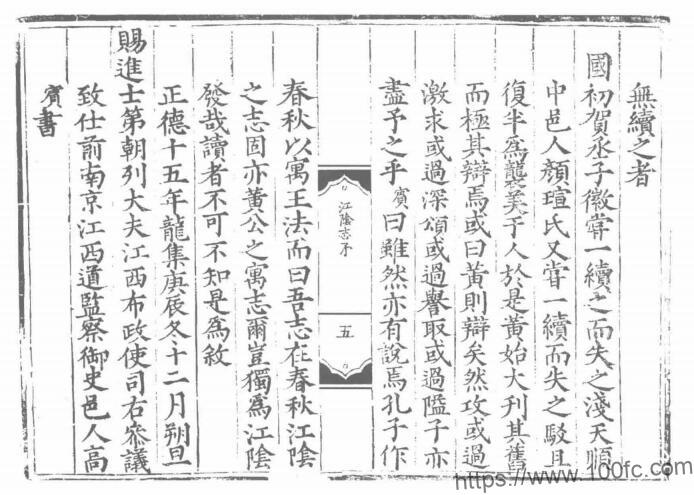 無續之者
國初賀丞子徽嘗一續之而失之淺天順
中邑人顏瑄氏又嘗一續而失之駁且
復半為襲美子人於是黃始大刊其舊
而極其辯焉或曰黃則辯矣然攻或過
激求或過深頌或過譽取或過隘子亦
盡予之乎賓曰雖然亦有說焉孔子作
江陰志序
五
春秋以寓王法而曰吾志在春秋江陰
之志固亦黃公之寓志爾豈獨為江陰
發哉讀者不可不知是為敘
正德十五年龍集庚辰冬十二月朔旦
賜進士第朝列大夫江西布政使司右叅議
致仕前南京江西道監察御史邑人高
賓書
https://www.100fc.com